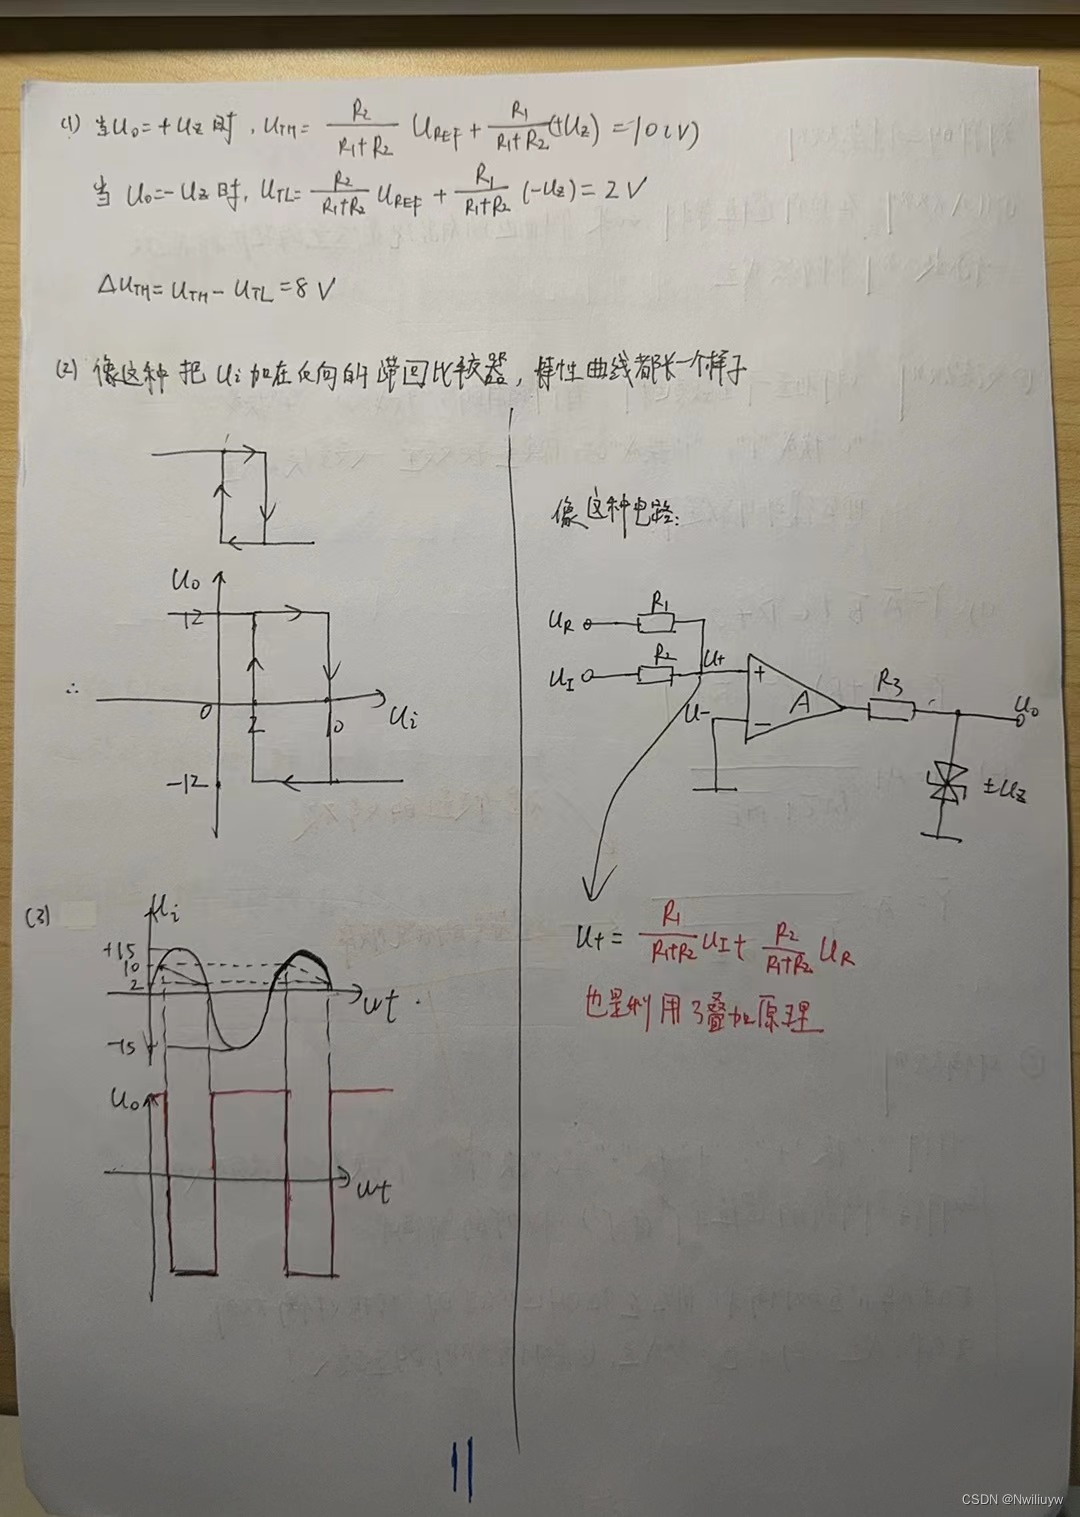 (1) 当U₀=+Uz时, UTH= R₂/(R₁+R₂) UREF + R₁/(R₁+R₂) (+Uz) =10(V)
当 U₀=-Uz时, UTL= R₂/(R₁+R₂) UREF + R₁/(R₁+R₂) (-Uz)= 2V
ΔUTH= UTH- UTL=8V
(2) 像这种 把 Ui加在反向的滞回比较器, 特性曲线都长一个样子
U₀
12
∴
0
2
10
Ui
-12
像这种电路:
UR
R₁
UI
R₂
U+
U-
+
-
A
R₃
U₀
±Uz
U+= R₁/(R₁+R₂) UI+ R₂/(R₁+R₂) UR
也是利用了叠加原理
(3)
Ui
+15
10
2
wt
-15
U₀
wt
11
CSDN @Nwiliuyw